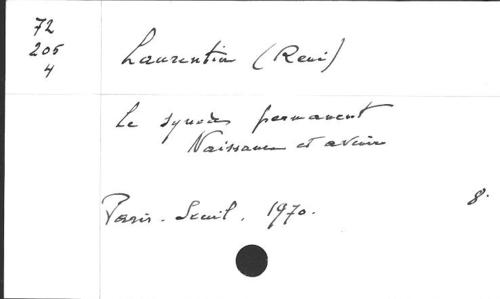 72
205
4
Laurentin (René)
Le synode permanent
Naissance et avenir
Paris. Seuil. 1970. 8.